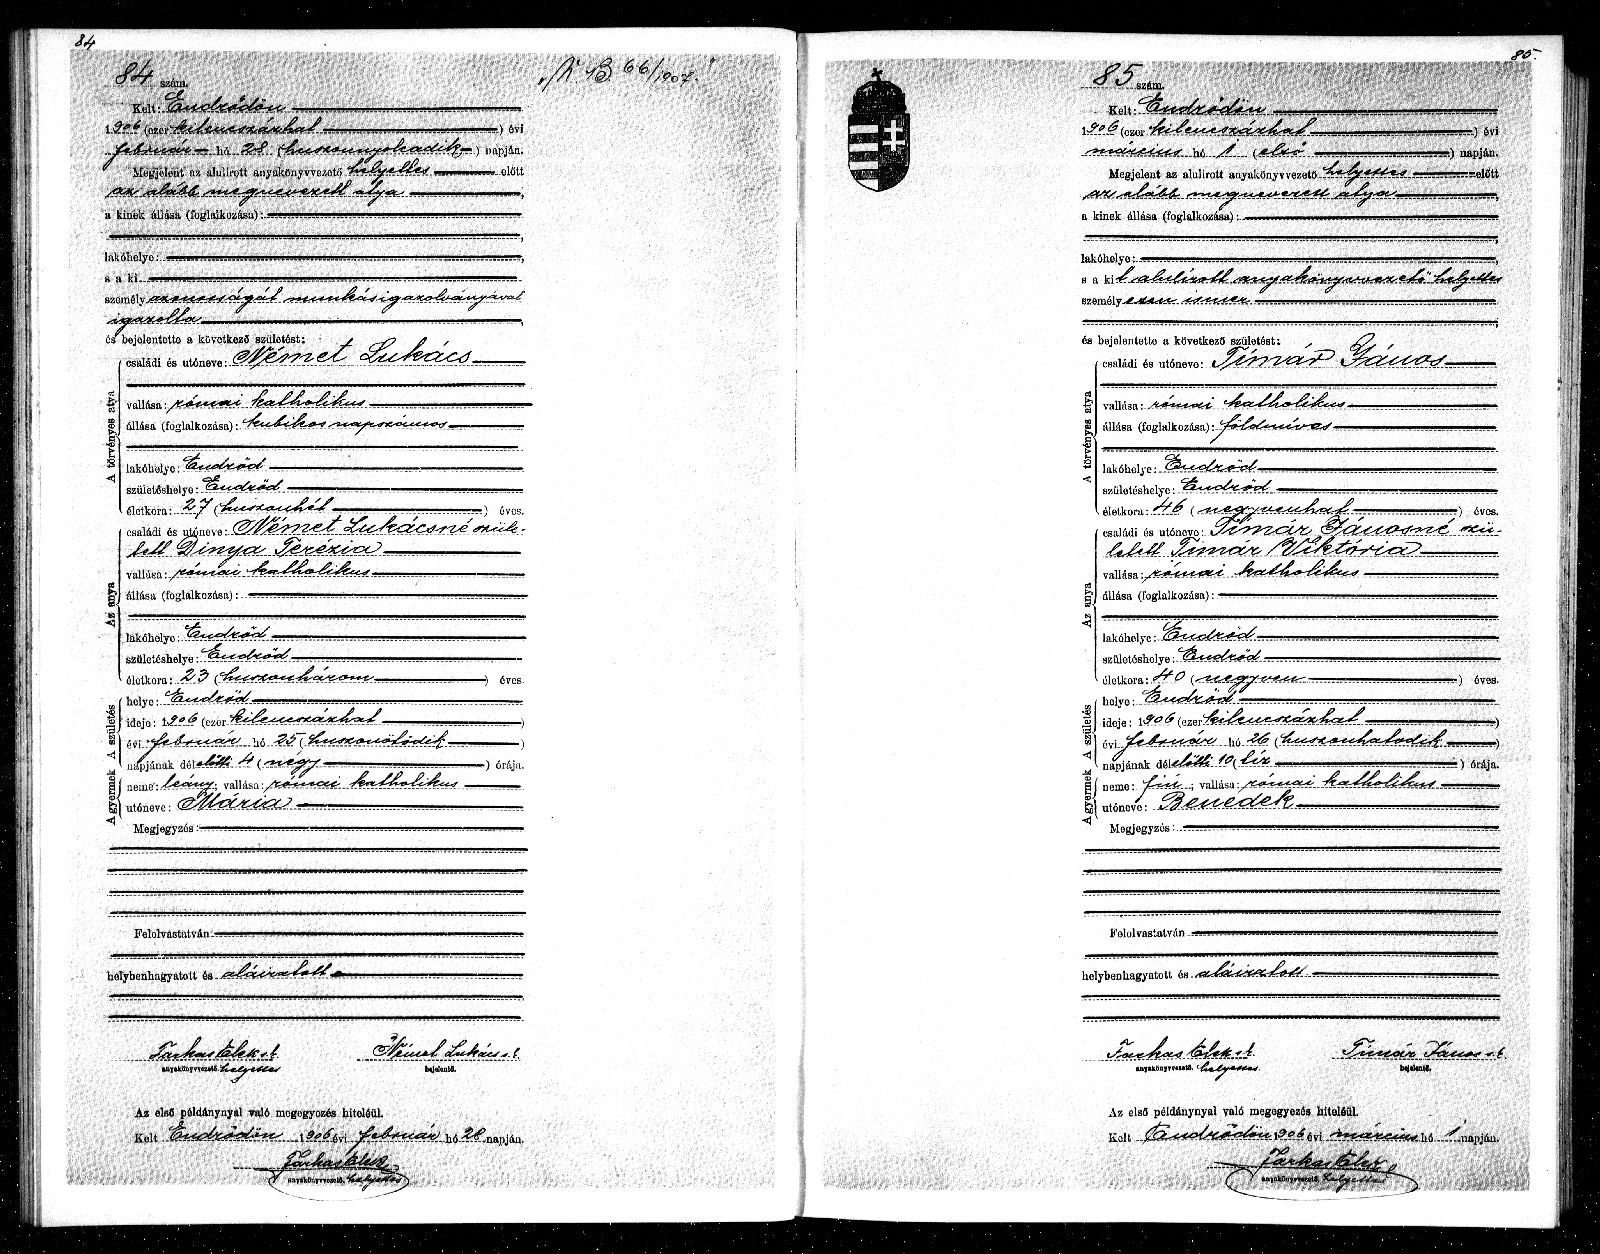 84
84 szám.
66/1907.
Kelt: Endrődön
1906 (ezer kilencszázhat) évi
február hó 28 (huszonnyolcadik) napján.
Megjelent az alulirott anyakönyvvezető helyettes előtt
az alább megnevezett atya,
a kinek állása (foglalkozása):
lakóhelye:
s a ki
személy azonosságát munkásigazolványával
igazolta
és bejelentette a következő születést:
A törvényes atya
családi és utóneve: Német Lukács
vallása: római katholikus
állása (foglalkozása): kubikos napszámos
lakóhelye: Endrőd
születéshelye: Endrőd
életkora: 27 (huszonhét) éves.
Az anya
családi és utóneve: Német Lukácsné szüle-
tett Dinya Terézia
vallása: római katholikus
állása (foglalkozása):
lakóhelye: Endrőd
születéshelye: Endrőd
életkora: 23 (huszonhárom) éves.
A születés
helye: Endrőd
ideje: 1906 (ezer kilencszázhat)
évi február hó 25 (huszonötödik)
napjának délelőtti 4 (négy) órája.
A gyermek
neme: leány; vallása: római katholikus
utóneve: Mária
Megjegyzés:
Felolvastatván
helybenhagyatott és aláiratott
Farkas Elek s.k. Német Lukács s.k.
anyakönyvvezető. helyettes bejelentő.
Az első példánynyal való megegyezés hiteléül.
Kelt Endrődön 1906 évi február hó 28 napján.
Farkas Elek
anyakönyvvezető. helyettes
85.
85 szám.
Kelt: Endrődön
1906 (ezer kilencszázhat) évi
március hó 1 (első) napján.
Megjelent az alulirott anyakönyvvezető helyettes előtt
az alább megnevezett atya,
a kinek állása (foglalkozása):
lakóhelye:
s a kit alulírott anyakönyvvezető helyettes
személyesen ismer
és bejelentette a következő születést:
A törvényes atya
családi és utóneve: Tímár János
vallása: római katholikus
állása (foglalkozása): földmíves
lakóhelye: Endrőd
születéshelye: Endrőd
életkora: 46 (negyvenhat) éves.
Az anya
családi és utóneve: Tímár Jánosné szü-
letett Tímár Viktória
vallása: római katholikus
állása (foglalkozása):
lakóhelye: Endrőd
születéshelye: Endrőd
életkora: 40 (negyven) éves.
A születés
helye: Endrőd
ideje: 1906 (ezer kilencszázhat)
évi február hó 26 (huszonhatodik)
napjának délelőtti 10 (tíz) órája.
A gyermek
neme: fiú; vallása: római katholikus
utóneve: Benedek
Megjegyzés:
Felolvastatván
helybenhagyatott és aláiratott
Farkas Elek s.k. Tímár János s.k.
anyakönyvvezető. helyettes bejelentő.
Az első példánynyal való megegyezés hiteléül.
Kelt Endrődön 1906 évi március hó 1 napján.
Farkas Elek
anyakönyvvezető. helyettes